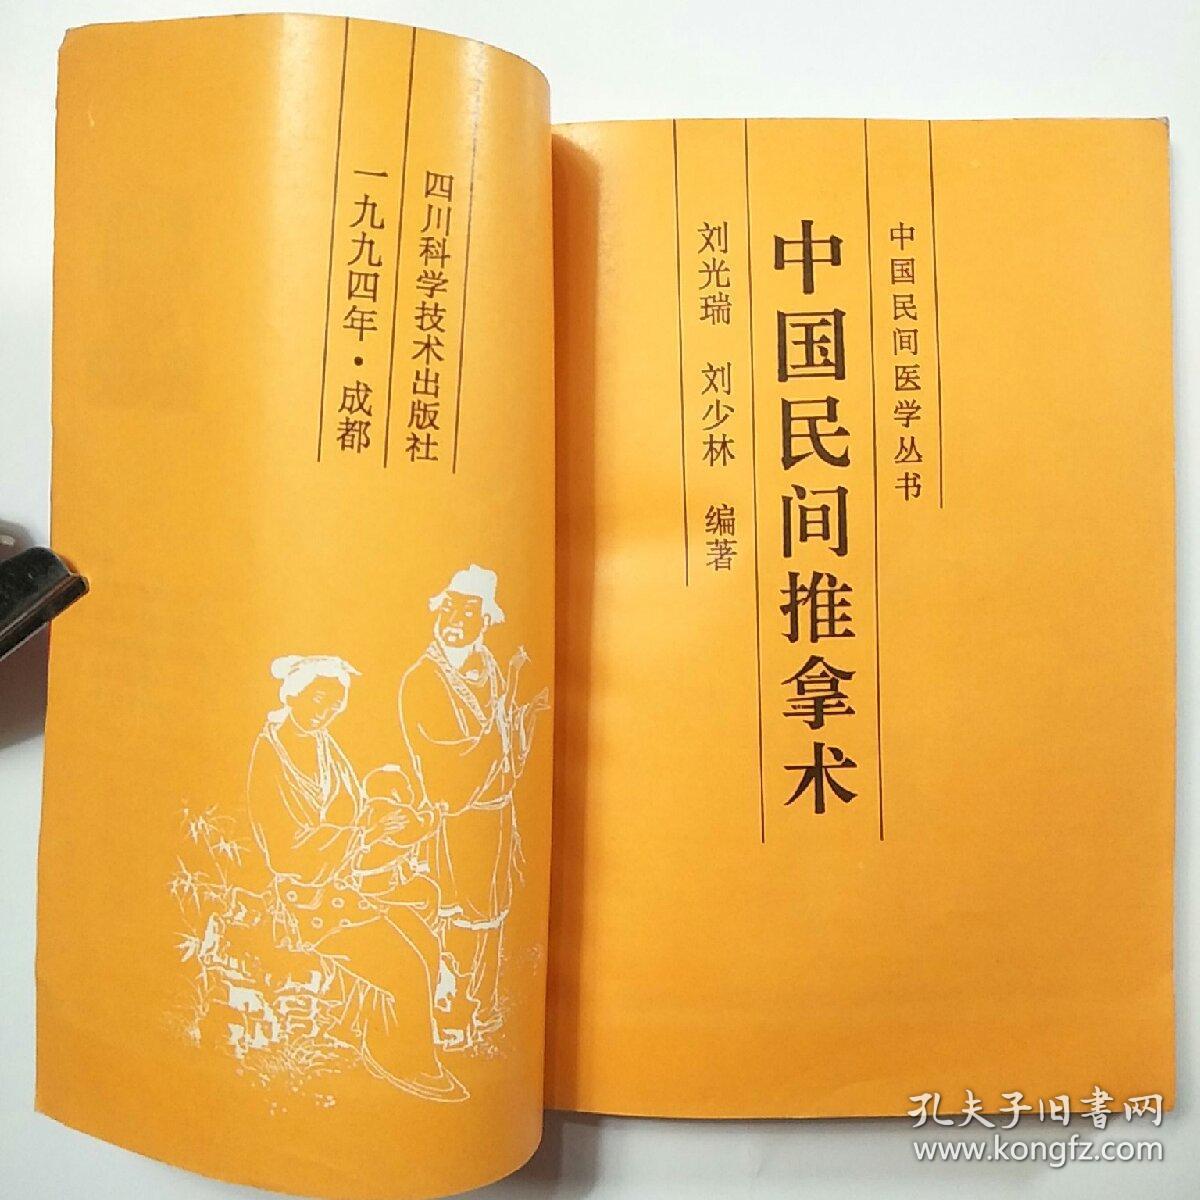 中国民间医学丛书
中国民间推拿术
刘光瑞 刘少林 编著
四川科学技术出版社
一九九四年·成都
孔夫子旧書网
www.kongfz.com